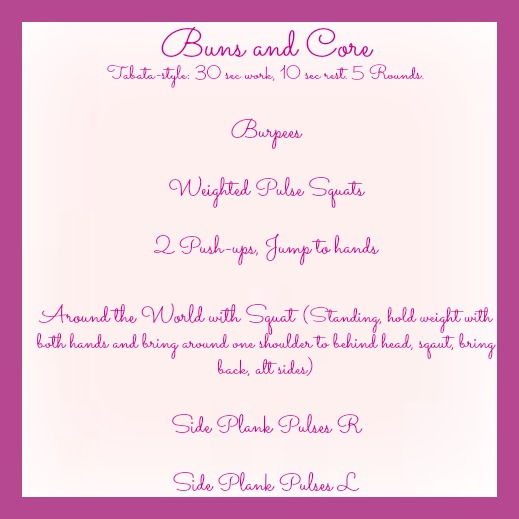 Buns and Core
Tabata-style: 30 sec work, 10 sec rest. 5 Rounds.
Burpees
Weighted Pulse Squats
2 Push-ups, Jump to hands
Around the World with Squat (Standing, hold weight with
both hands and bring around one shoulder to behind head, sqaut, bring
back, alt sides)
Side Plank Pulses R
Side Plank Pulses L